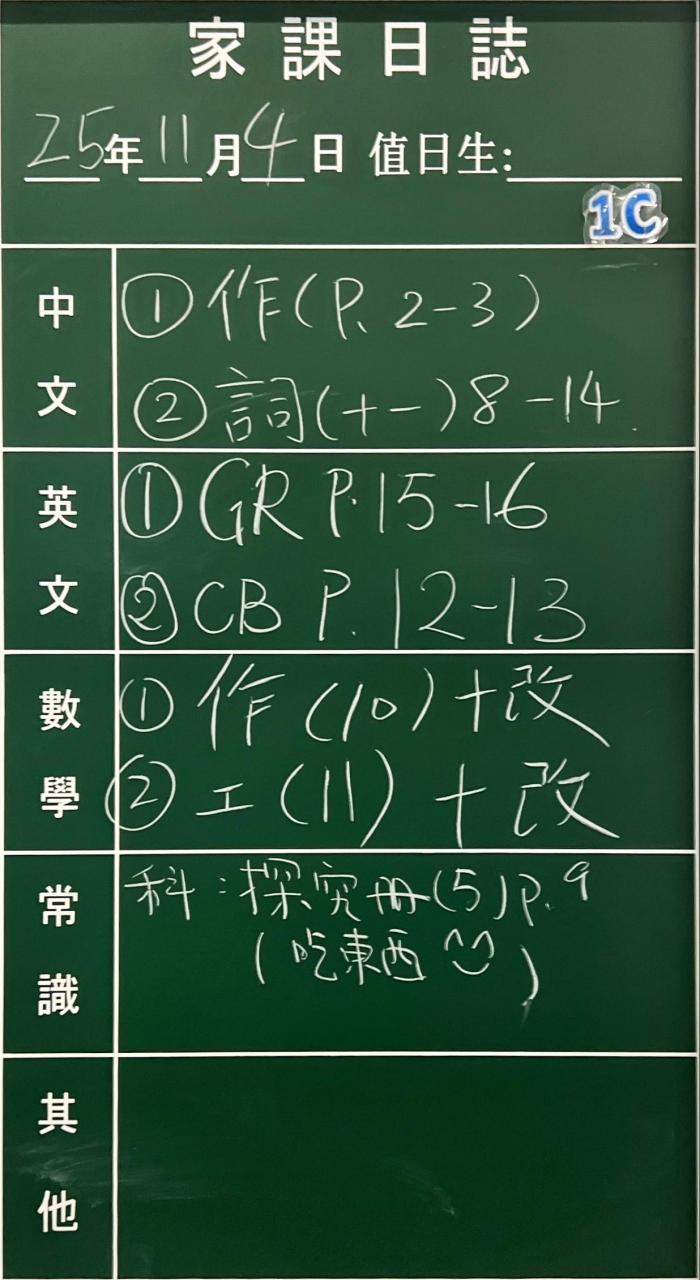 家課日誌
25年11月4日 值日生:
1C
中文
① 作(P. 2-3)
② 詞(十一)8-14.
英文
① GR P.15-16
② CB P. 12-13
數學
① 作 (10)+改
② 工 (11) + 改
常識
科:探究冊(5)P.9
(吃東西)
其他